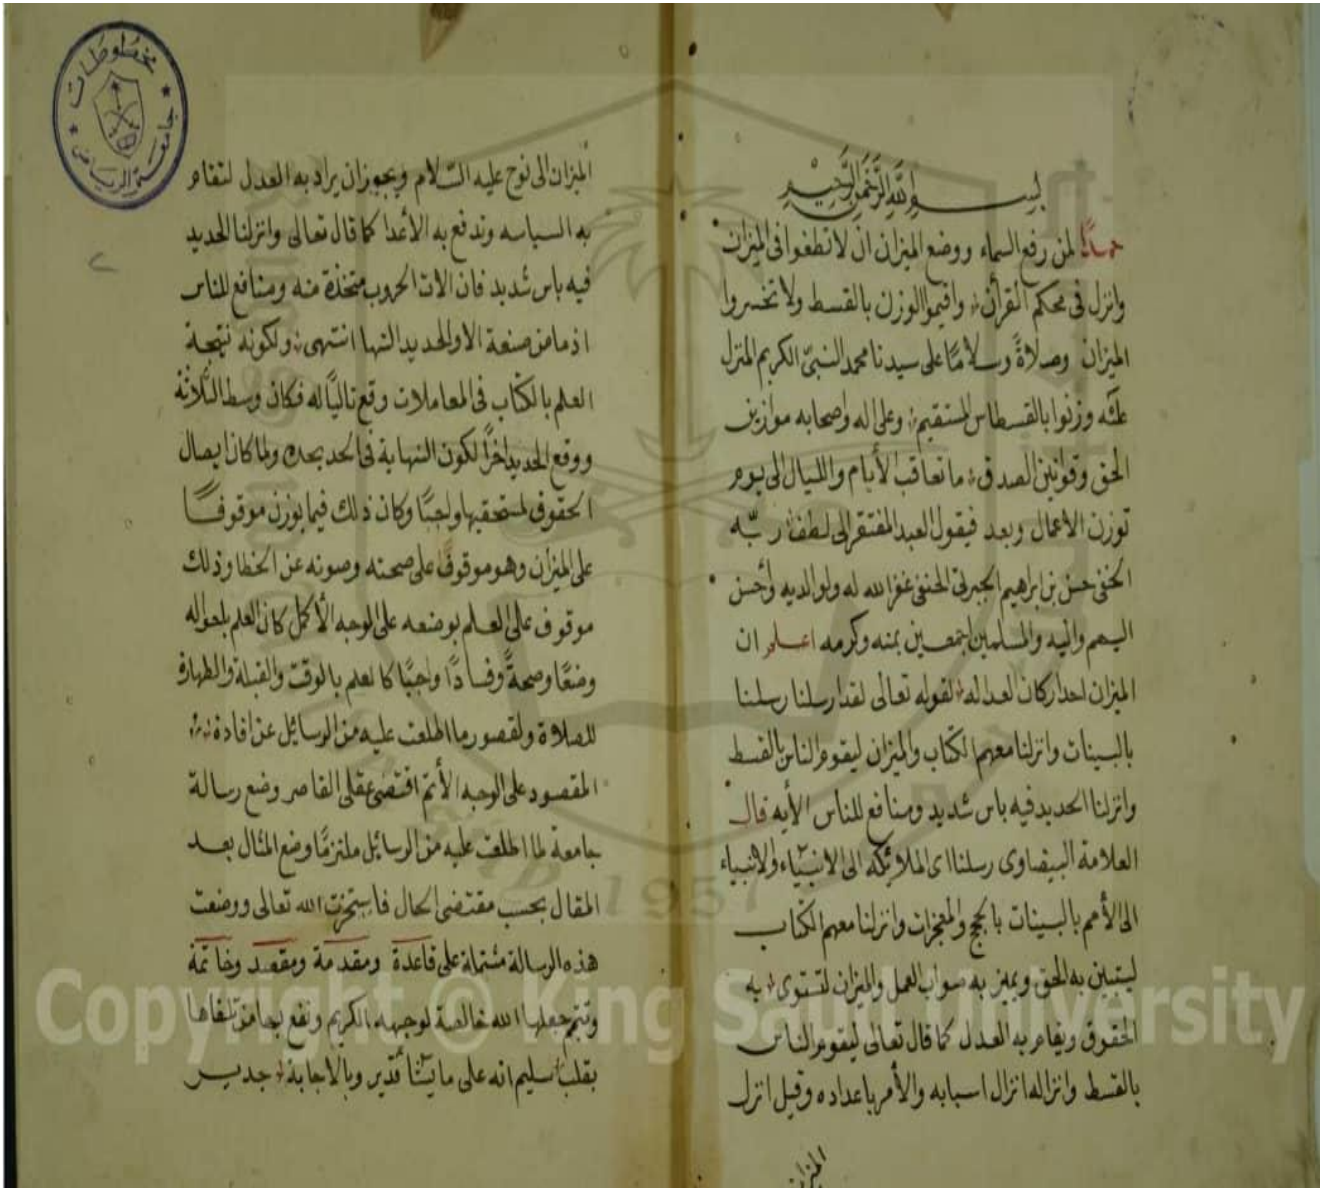 بسم الله الرحمن الرحيم
حمدًا لمن رفع السماء ووضع الميزان ان لا تطغوا فى الميزان
وانزل فى محكم القرآن واقيموا الوزن بالقسط ولا تخسروا
الميزان وصلاةً وسلامًا على سيدنا محمد النبىّ الكريم المنزل
عليه وزنوا بالقسطاس المستقيم وعلى اله واصحابه موازين
الحق وقوانين الصدق ما تعاقب الأيام والليال الى يوم
توزن الاعمال وبعد فيقول العبد المفتقر الى لطف ربّه
الخفى حسن بن ابراهيم الجبرتى الحنفى غفر الله له ولوالديه وأحسن
اليهم واليه والمسلمين اجمعين بمنه وكرمه اعلم ان
الميزان احد اركان العداله لقوله تعالى لقد ارسلنا رسلنا
بالبينات وانزلنا معهم الكتاب والميزان ليقوم الناس بالقسط
وانزلنا الحديد فيه باس شديد ومنافع للناس الأيه قال
العلامة البيضاوى رسلنا اى الملائكه الى الانبياء والانبياء
الى الأمم بالبينات بالحجج والمعجزات وانزلنا معهم الكتاب
ليتبين به الحق ويميز به صواب العمل والميزان لتستوى به
الحقوق ويقام به العدل كما قال تعالى ليقوم الناس
بالقسط وانزاله انزال اسبابه والأمر باعداده وقيل انزل
الميزان
مخطوطات
جامعة الرياض
الميزان الى نوح عليه السّلام ويجوز ان يراد به العدل لتقام
به السياسه وتدفع به الأعدا كما قال تعالى وانزلنا الحديد
فيه باس شديد فان الات الحروب متخذة منه ومنافع للناس
اذ ما من صنعة الا والحديد التها انتهى ولكونه نتيجة
العلم بالكتاب فى المعاملات وقع تاليًا له فكان وسط الثلاثة
ووقع الحديد اخرًا لكون النهاية فى الحد بحده ولما كان ايصال
الحقوق لمستحقيها واجبًا وكان ذلك فيما يوزن موقوفًا
على الميزان وهو موقوفًا على صحته وصونه عن الخطا وذلك
موقوف على العلم بوضعه على الوجه الأكمل كان العلم باحواله
وضعًا وصحةً وفسادًا واجبًا كالعلم بالوقت والقبلة والطهارة
للصلاة ولقصور ما اطلعت عليه من الرسائل عن افادة
المقصود على الوجه الأتم اقتضى عقلى القاصر وضع رسالة
جامعة لما اطلعت عليه من الرسائل ملتزمًا وضع المثال بعد
المقال بحسب مقتضى الحال فاستخرت الله تعالى ووضعت
هذه الرسالة مشتملة على قاعدة ومقدمة ومقصد وخاتمة
وتتم جعلها الله خالصة لوجهه الكريم ونفع بها من تلقاها
بقلب سليم انه على ما يشا قدير وبالاجابة جدير
٢
1957
Copyright © King Saud University